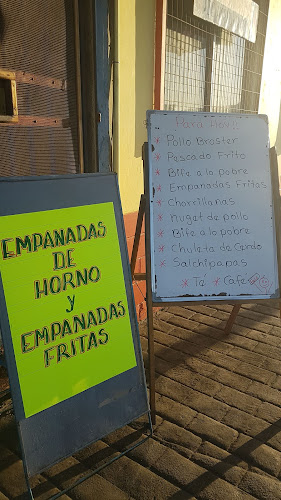 EMPANADAS
DE
HORNO
y
EMPANADAS
FRITAS
Para Hoy
* Pollo Broster
* Pescado Frito
* Bife a lo pobre
* Empanadas Fritas
* Chorrillanas
* nuget de pollo
* Bife a lo pobre
* Chuleta de Cerdo
* Salchipanas
* Té * Cafe